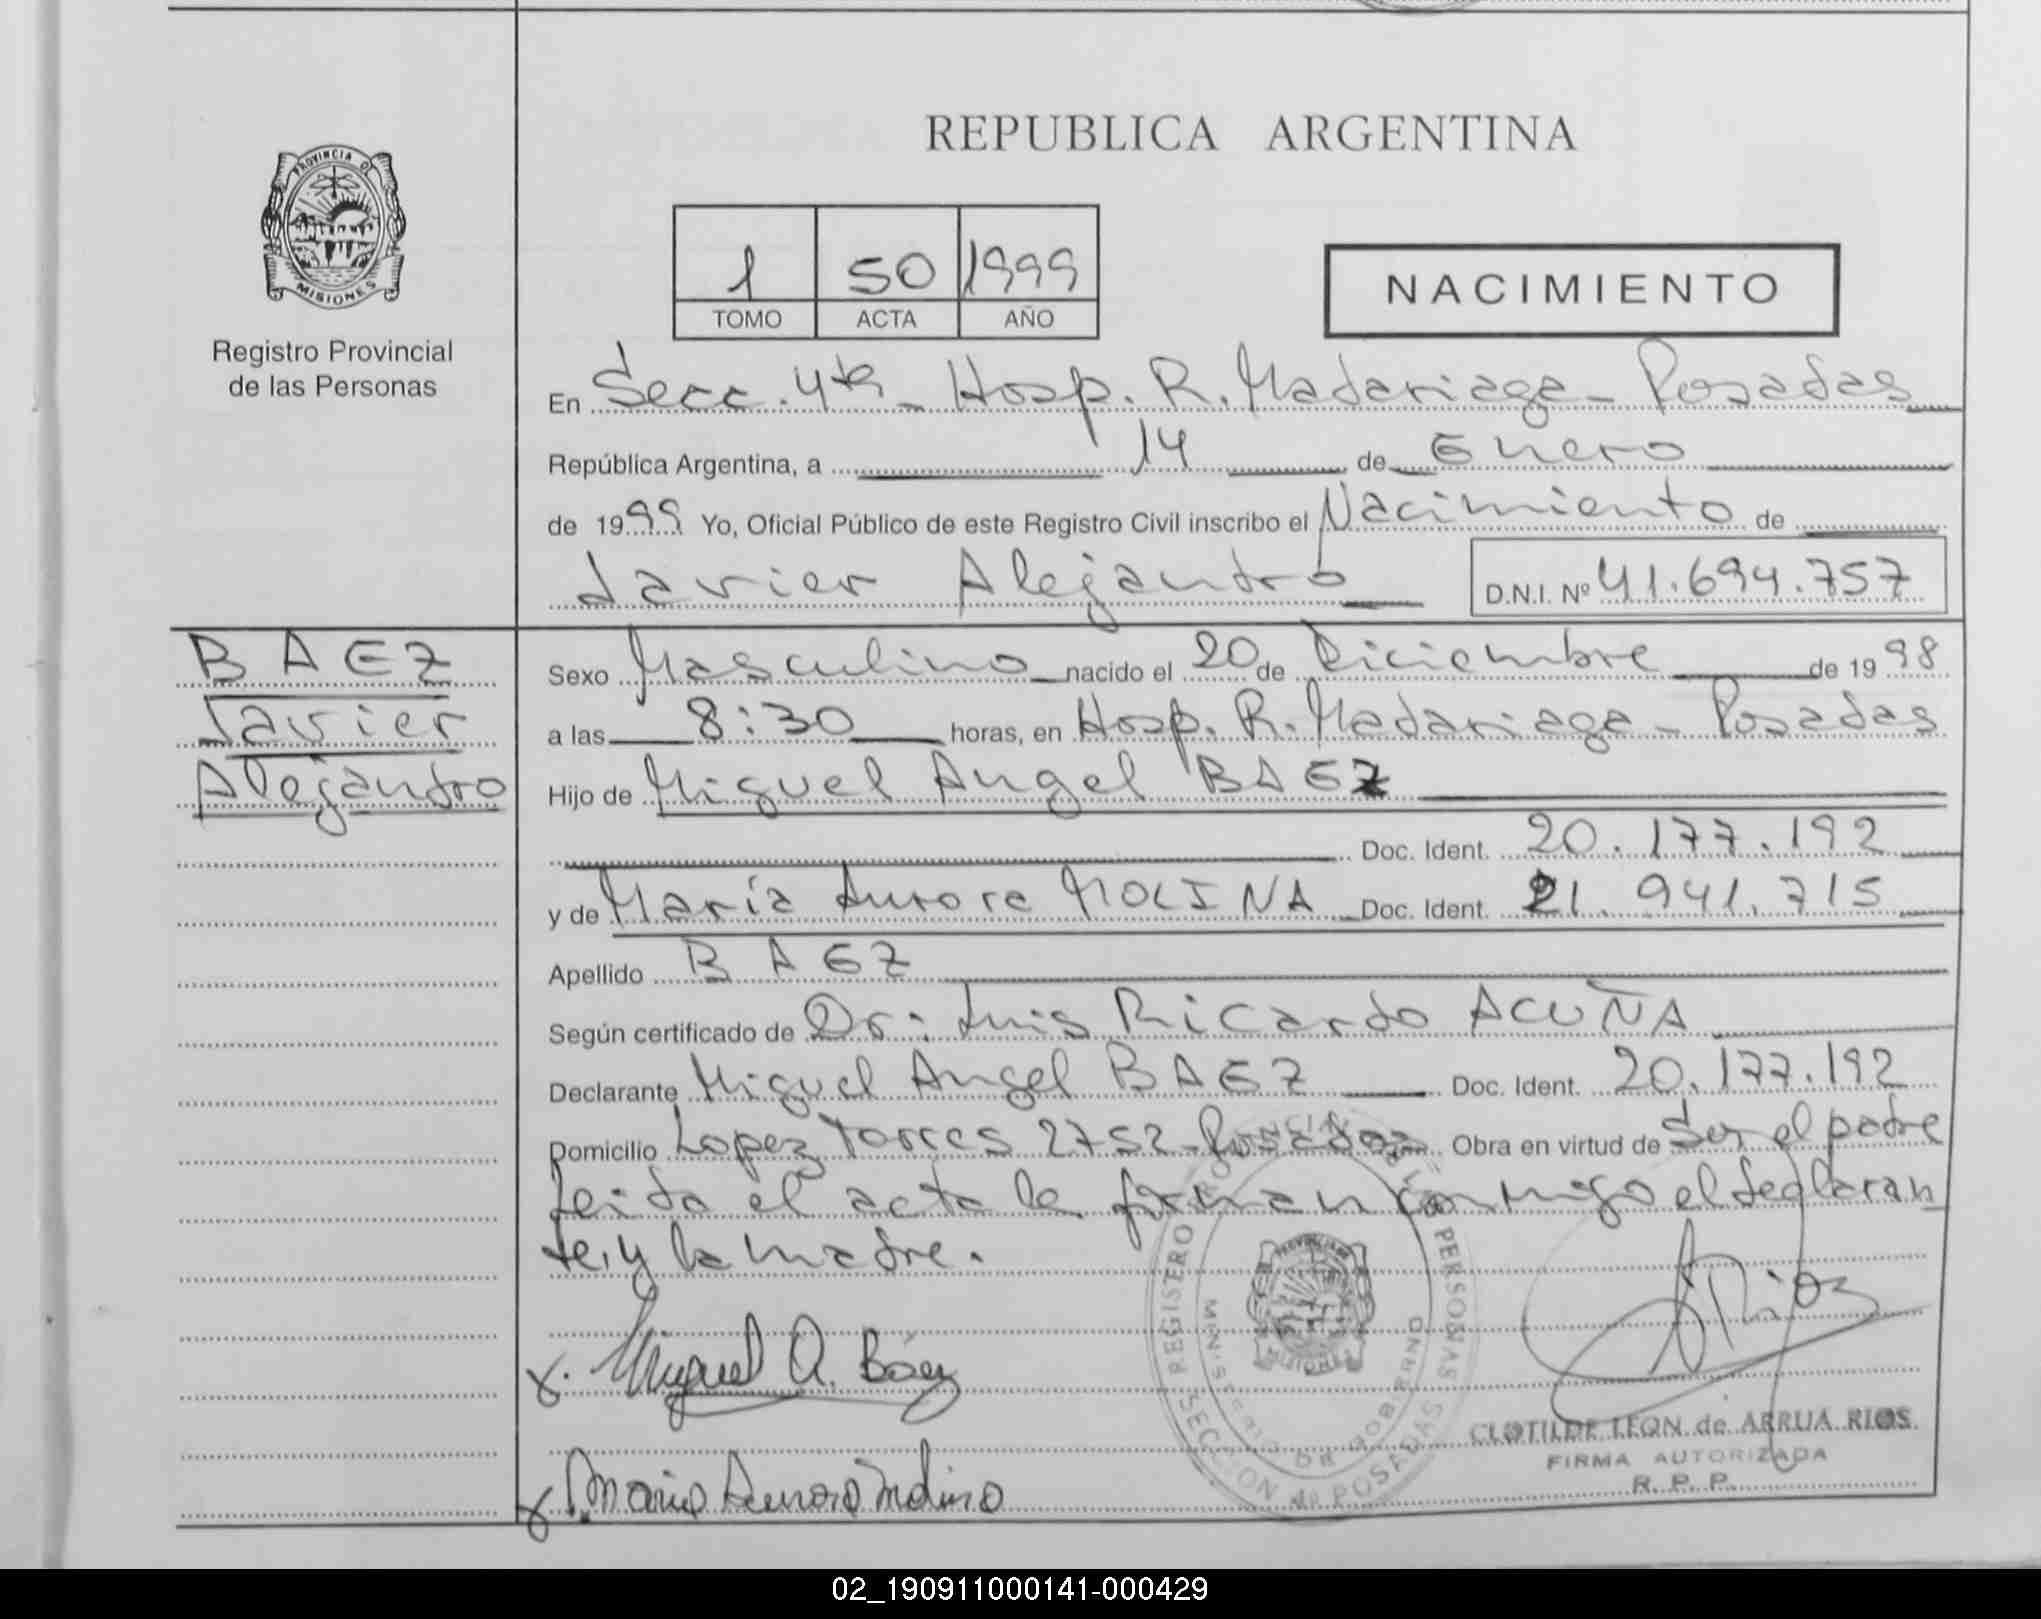 REPUBLICA ARGENTINA
PROVINCIA DE
MISIONES
Registro Provincial
de las Personas
1 50 1999
TOMO ACTA AÑO
NACIMIENTO
En Secc. 4ta - Hosp. R. Madariaga - Posadas
República Argentina, a 14 de Enero
de 1999 Yo, Oficial Público de este Registro Civil inscribo el Nacimiento de
Javier Alejandro D.N.I. Nº 41.694.757
BAEZ
Javier
Alejandro
Sexo Masculino nacido el 20 de Diciembre de 1998
a las 8:30 horas, en Hosp. R. Madariaga - Posadas
Hijo de Miguel Angel BAEZ
Doc. Ident. 20.177.192
y de María Aurora MOLINA Doc. Ident. 21.941.715
Apellido BAEZ
Según certificado de Dr: Luis Ricardo ACUÑA
Declarante Miguel Angel BAEZ Doc. Ident. 20.177.192
Domicilio Lopez Torres 2752 - Posadas Obra en virtud de Ser el padre
leida el acta la firman conmigo el declaran
te, y la madre.
Miguel A. Báez
A Rios
REGISTRO PROVINCIAL DE LAS PERSONAS
MINISTERIO DE GOBIERNO
SECCION 4ta POSADAS
CLOTILDE LEON de ARRUA RIOS
FIRMA AUTORIZADA
R. P. P.
Maria Aurora Molina
02_190911000141-000429